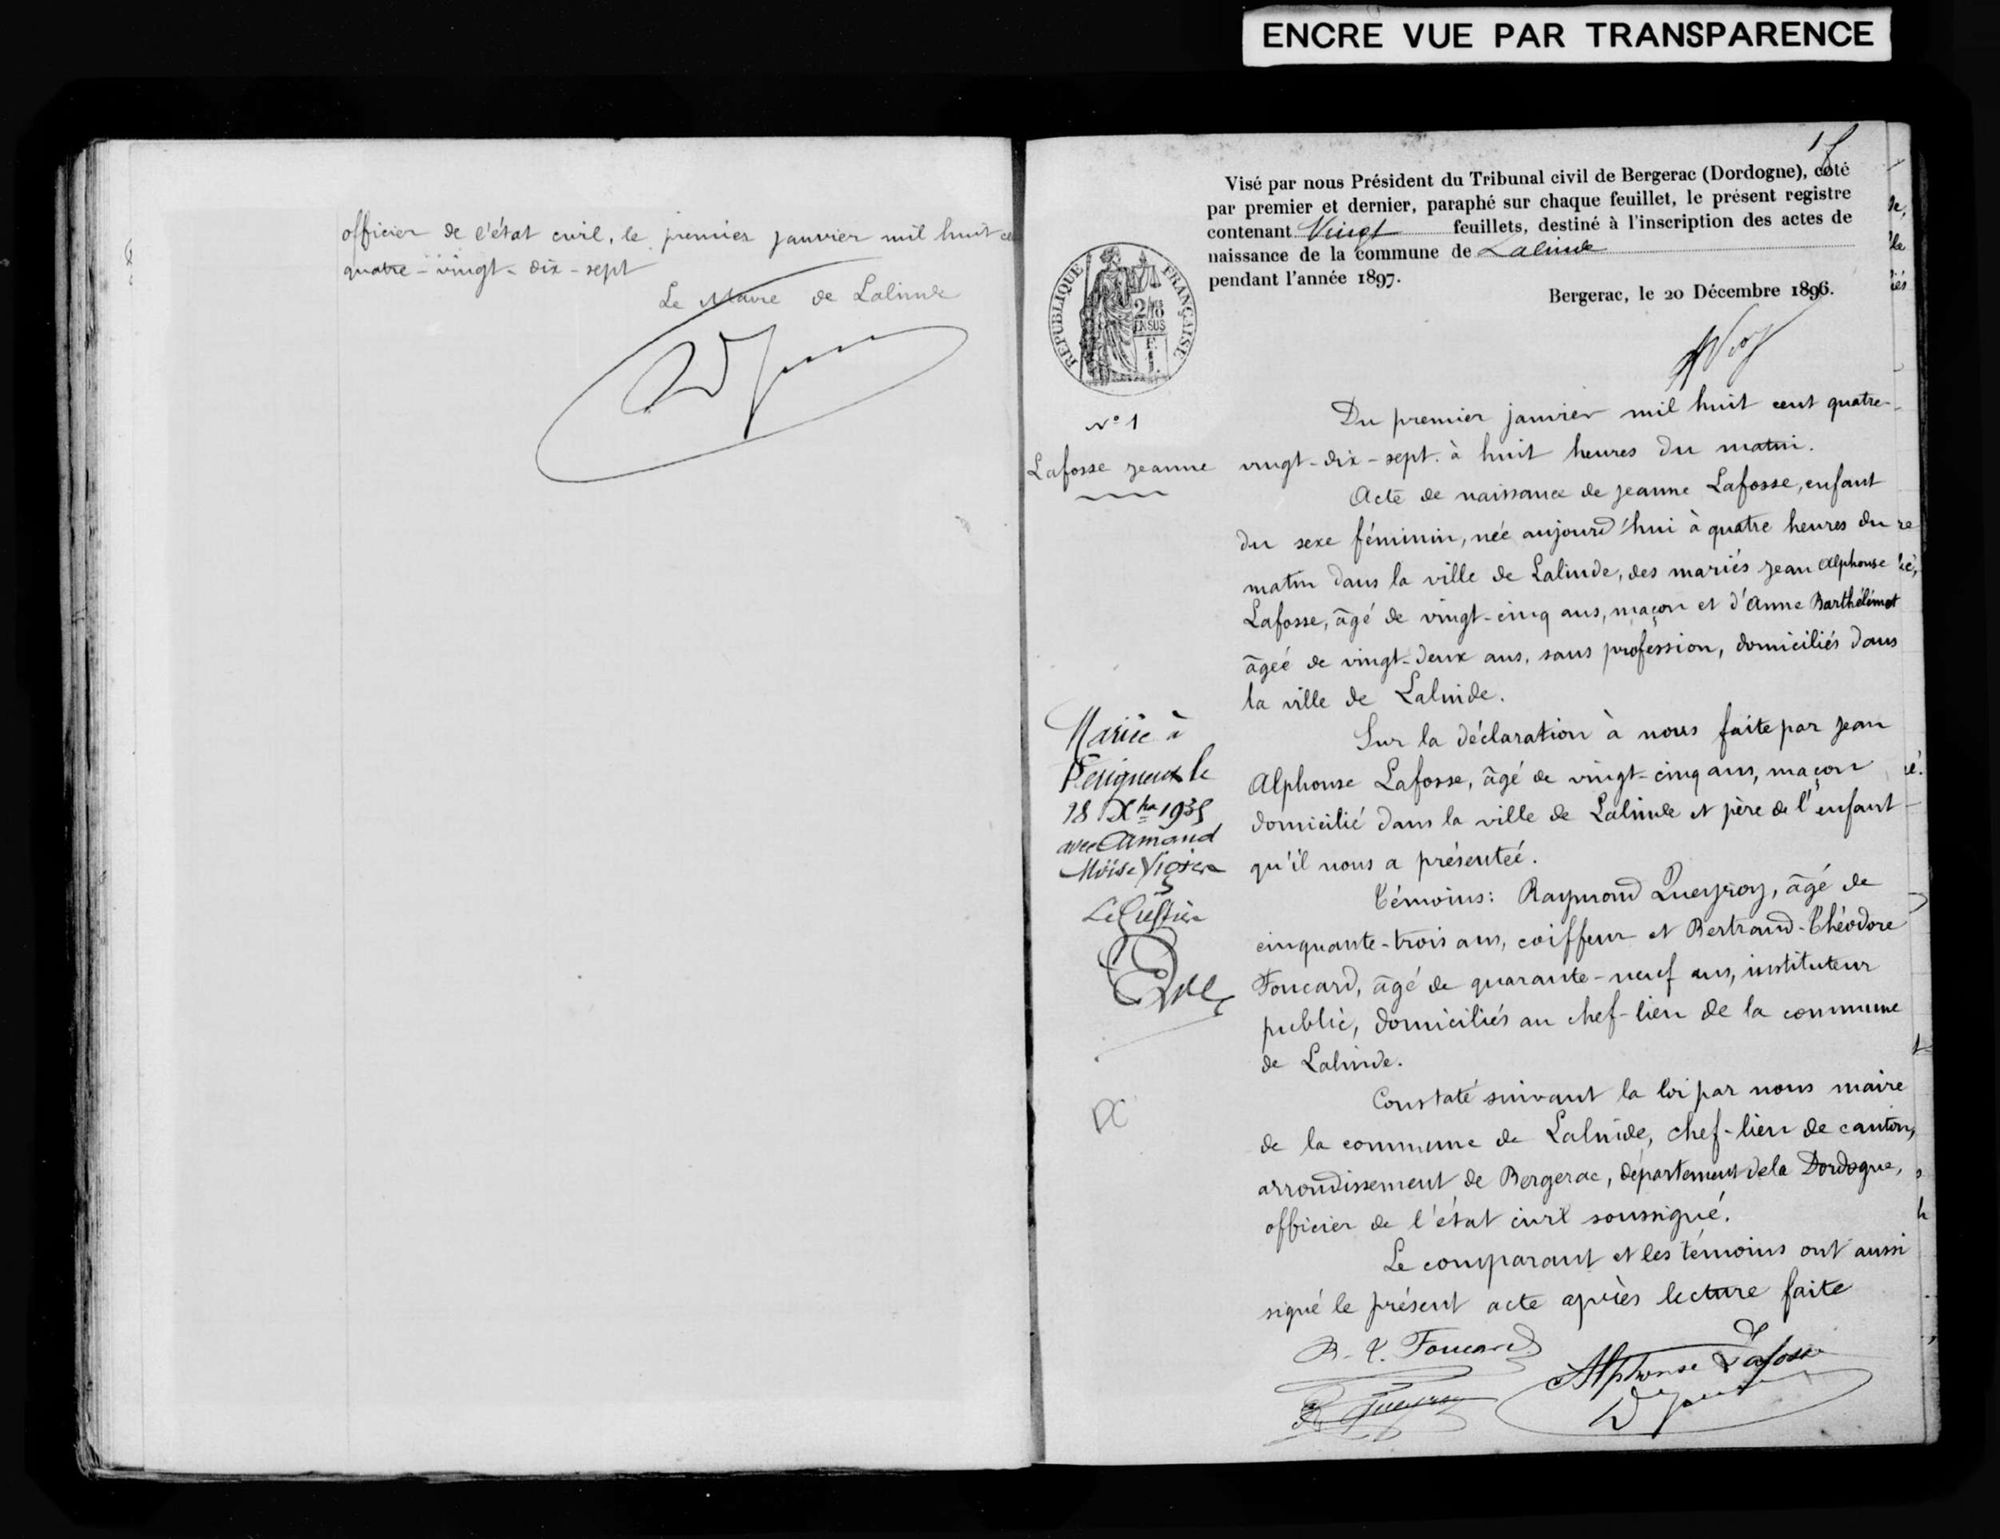 ENCRE VUE PAR TRANSPARENCE
officier de l'état civil, le premier janvier mil huit ce
quatre-vingt-dix-sept
Le Maire de Lalinde
1
Visé par nous Président du Tribunal civil de Bergerac (Dordogne), coté
par premier et dernier, paraphé sur chaque feuillet, le présent registre
contenant Vingt feuillets, destiné à l'inscription des actes de
naissance de la commune de Lalinde
pendant l'année 1897.
Bergerac, le 20 Décembre 1896.
RÉPUBLIQUE FRANÇAISE
N° 1
Lafosse Jeanne
Du premier janvier mil huit cent quatre-
vingt-dix-sept. à huit heures du matin.
Acte de naissance de Jeanne Lafosse, enfant
du sexe féminin, née aujourd'hui à quatre heures du
matin dans la ville de Lalinde, des mariés Jean Alphonse
Lafosse, âgé de vingt-cinq ans, maçon et d'Anne Barthélémot
âgée de vingt-deux ans, sans profession, domiciliés dans
la ville de Lalinde.
Sur la déclaration à nous faite par Jean
Alphonse Lafosse, âgé de vingt-cinq ans, maçon
domicilié dans la ville de Lalinde et père de l'enfant
qu'il nous a présenteé.
Témoins: Raymond Queyroy, âgé de
cinquante-trois ans, coiffeur et Bertrand-Théodore
Foucard, âgé de quarante-neuf ans, instituteur
public, domiciliés au chef-lieu de la commune
de Lalinde.
Constaté suivant la loi par nous maire
de la commune de Lalinde, chef-lieu de canton,
arrondissement de Bergerac, département de la Dordogne,
officier de l'état civil soussigné.
Le comparant et les témoins ont aussi
signé le présent acte après lecture faite
Mariée à
Périgueux le
28 Xbre 1935
avec Amand
Moïse Vigier
Le Greffier
DC
B. T. Foucard
Alphonse Lafosse
R. Queyroy